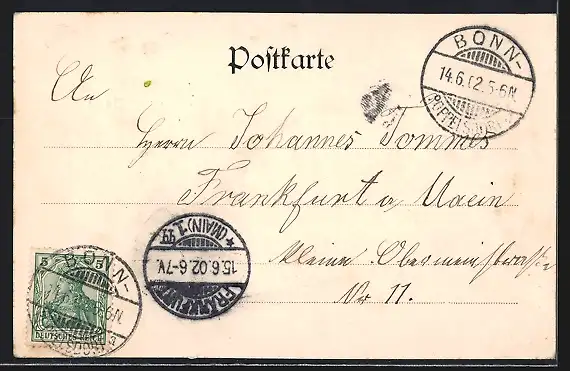 Postkarte
BONN-
14.6.02.5-6N.
An
Herrn Johannes Tommes
Frankfurt a Main
kleine Obermainstraße
Nr 11.
* (MAIN) 1 *
15.6.02.6-7V.
FRANKFURT
5 5
BONN-
DEUTSCHES REICH